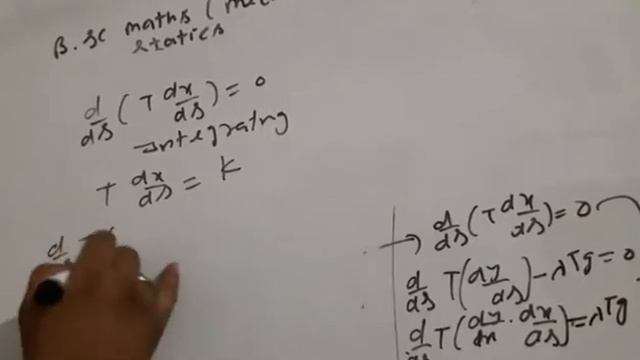 B.sc maths (
statics
d/ds (T dx/ds) = 0
Integrating
T dx/ds = K
d
→ d/ds (T dx/ds) = 0
d/ds T(dy/ds) - λTg = 0
d/ds T(dy/dx . dx/ds) = λTg